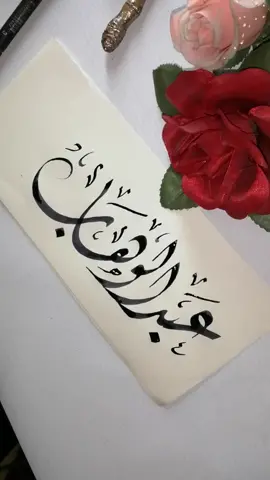 عبد الوهاب